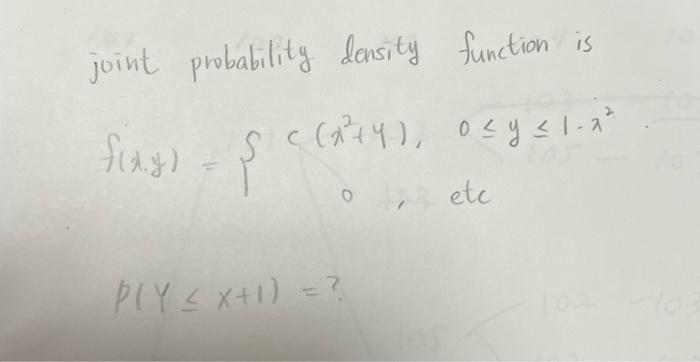 joint probability density function is
f(x,y) = { c (x²+y), 0 ≤ y ≤ 1-x²
0, etc
P(Y ≤ X+1) = ?